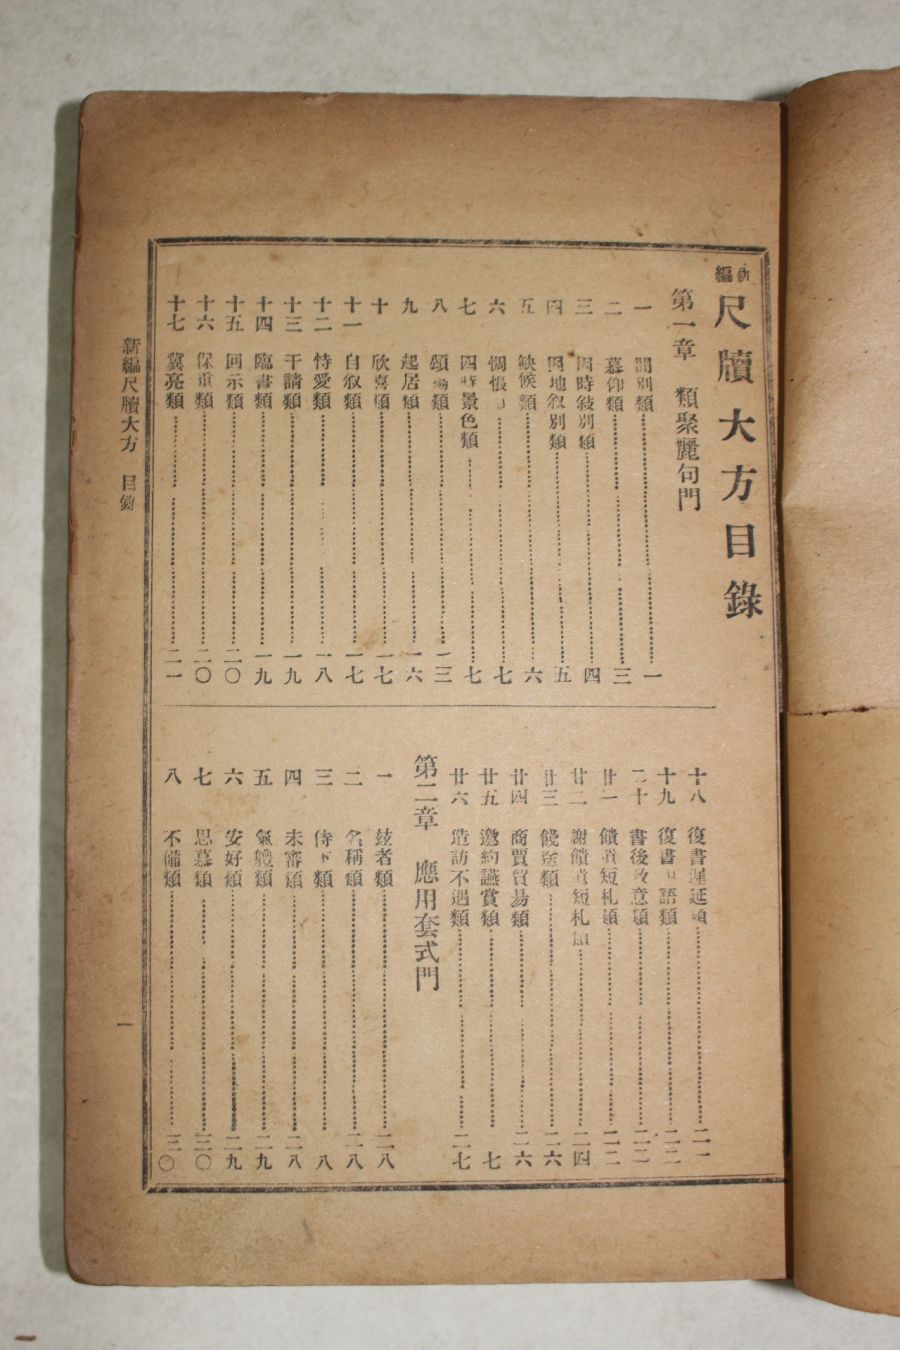 新編尺牘大方目錄
第一章　類聚麗句門
一　間別類　一
二　慕仰類　三
三　因時敍別類　四
四　因地叙別類　五
五　缺候類　六
六　惆悵　七
七　四時景色類　七
八　頌揚類　一三
九　起居類　一六
十　欣喜類　一七
十一　自叙類　一七
十二　恃愛類　一八
十三　干請類　一九
十四　臨書類　一九
十五　回示類　二〇
十六　保重類　二〇
十七　冀亮類　二一
十八　復書遲延類　二一
十九　復書語類　二二
二十　書後致意類　二二
廿一　饋貽短札類　二二
廿二　謝饋短札類　二四
廿三　餞送類　二六
廿四　商賈貿易類　二六
廿五　邀約讌賞類　七
廿六　造訪不遇類　二七
第二章　應用套式門
一　玆者類　二八
二　名稱類　二八
三　侍下類　八
四　未審類　二八
五　氣體類　二九
六　安好類　二九
七　思慕類　三〇
八　不備類　三〇
新編尺牘大方　目錄
一